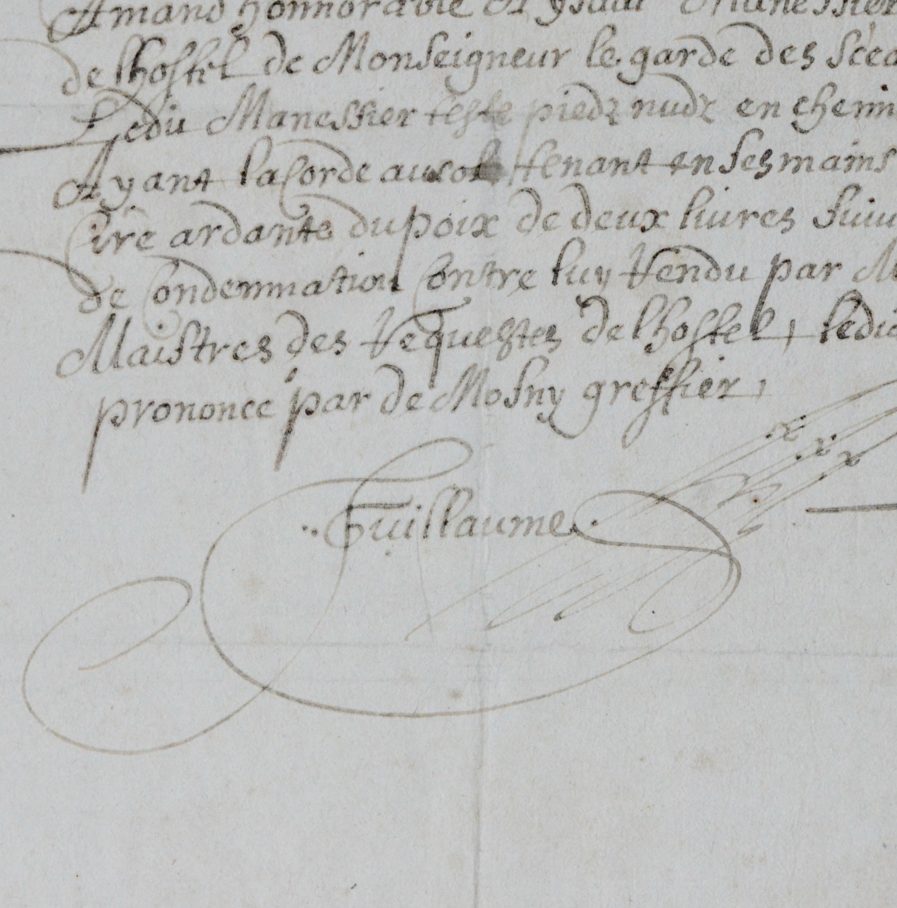 Amand honnorable et ysaac Manessier
de lhostel de Monseigneur le garde des Scea
Ledit Manessier teste piedz nudz en chemi
Ayant la Corde au col tenant en ses mains
Cire ardante du poix de deux liures Suiu
de Condemnation Contre luy Rendu par M
Maistres des Requestes de lhostel, ledic
prononcé par de Mosny greffier,
Guillaume